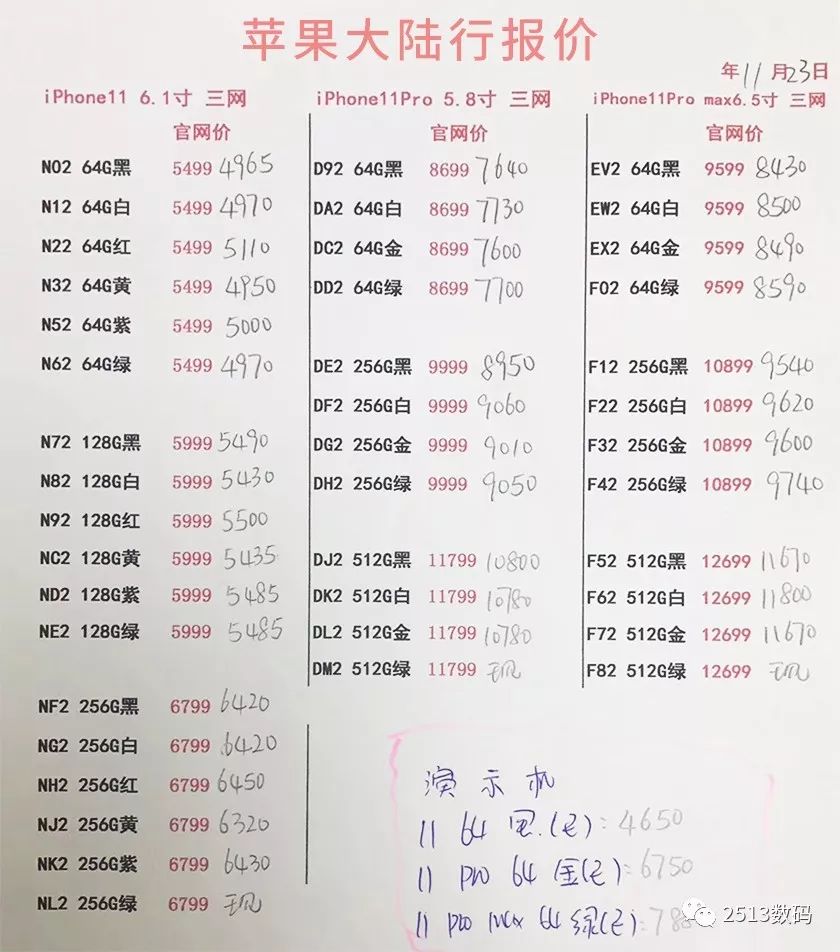 苹果大陆行报价
年11月23日
iPhone11 6.1寸 三网
官网价
N02 64G黑 5499 4965
N12 64G白 5499 4970
N22 64G红 5499 5110
N32 64G黄 5499 4950
N52 64G紫 5499 5000
N62 64G绿 5499 4970
N72 128G黑 5999 5490
N82 128G白 5999 5430
N92 128G红 5999 5500
NC2 128G黄 5999 5435
ND2 128G紫 5999 5485
NE2 128G绿 5999 5485
NF2 256G黑 6799 6420
NG2 256G白 6799 6420
NH2 256G红 6799 6450
NJ2 256G黄 6799 6320
NK2 256G紫 6799 6430
NL2 256G绿 6799 现
iPhone11Pro 5.8寸 三网
官网价
D92 64G黑 8699 7640
DA2 64G白 8699 7730
DC2 64G金 8699 7600
DD2 64G绿 8699 7700
DE2 256G黑 9999 8950
DF2 256G白 9999 9060
DG2 256G金 9999 9010
DH2 256G绿 9999 9050
DJ2 512G黑 11799 10800
DK2 512G白 11799 10780
DL2 512G金 11799 10780
DM2 512G绿 11799 现
iPhone11Pro max6.5寸 三网
官网价
EV2 64G黑 9599 8430
EW2 64G白 9599 8500
EX2 64G金 9599 8490
F02 64G绿 9599 8590
F12 256G黑 10899 9540
F22 256G白 10899 9620
F32 256G金 10899 9600
F42 256G绿 10899 9740
F52 512G黑 12699 11670
F62 512G白 12699 11800
F72 512G金 12699 11670
F82 512G绿 12699 现
演示机
11 64 黑.(无): 4650
11 pro 64 金(无): 6750
11 pro Max 64 绿(无):
2513数码